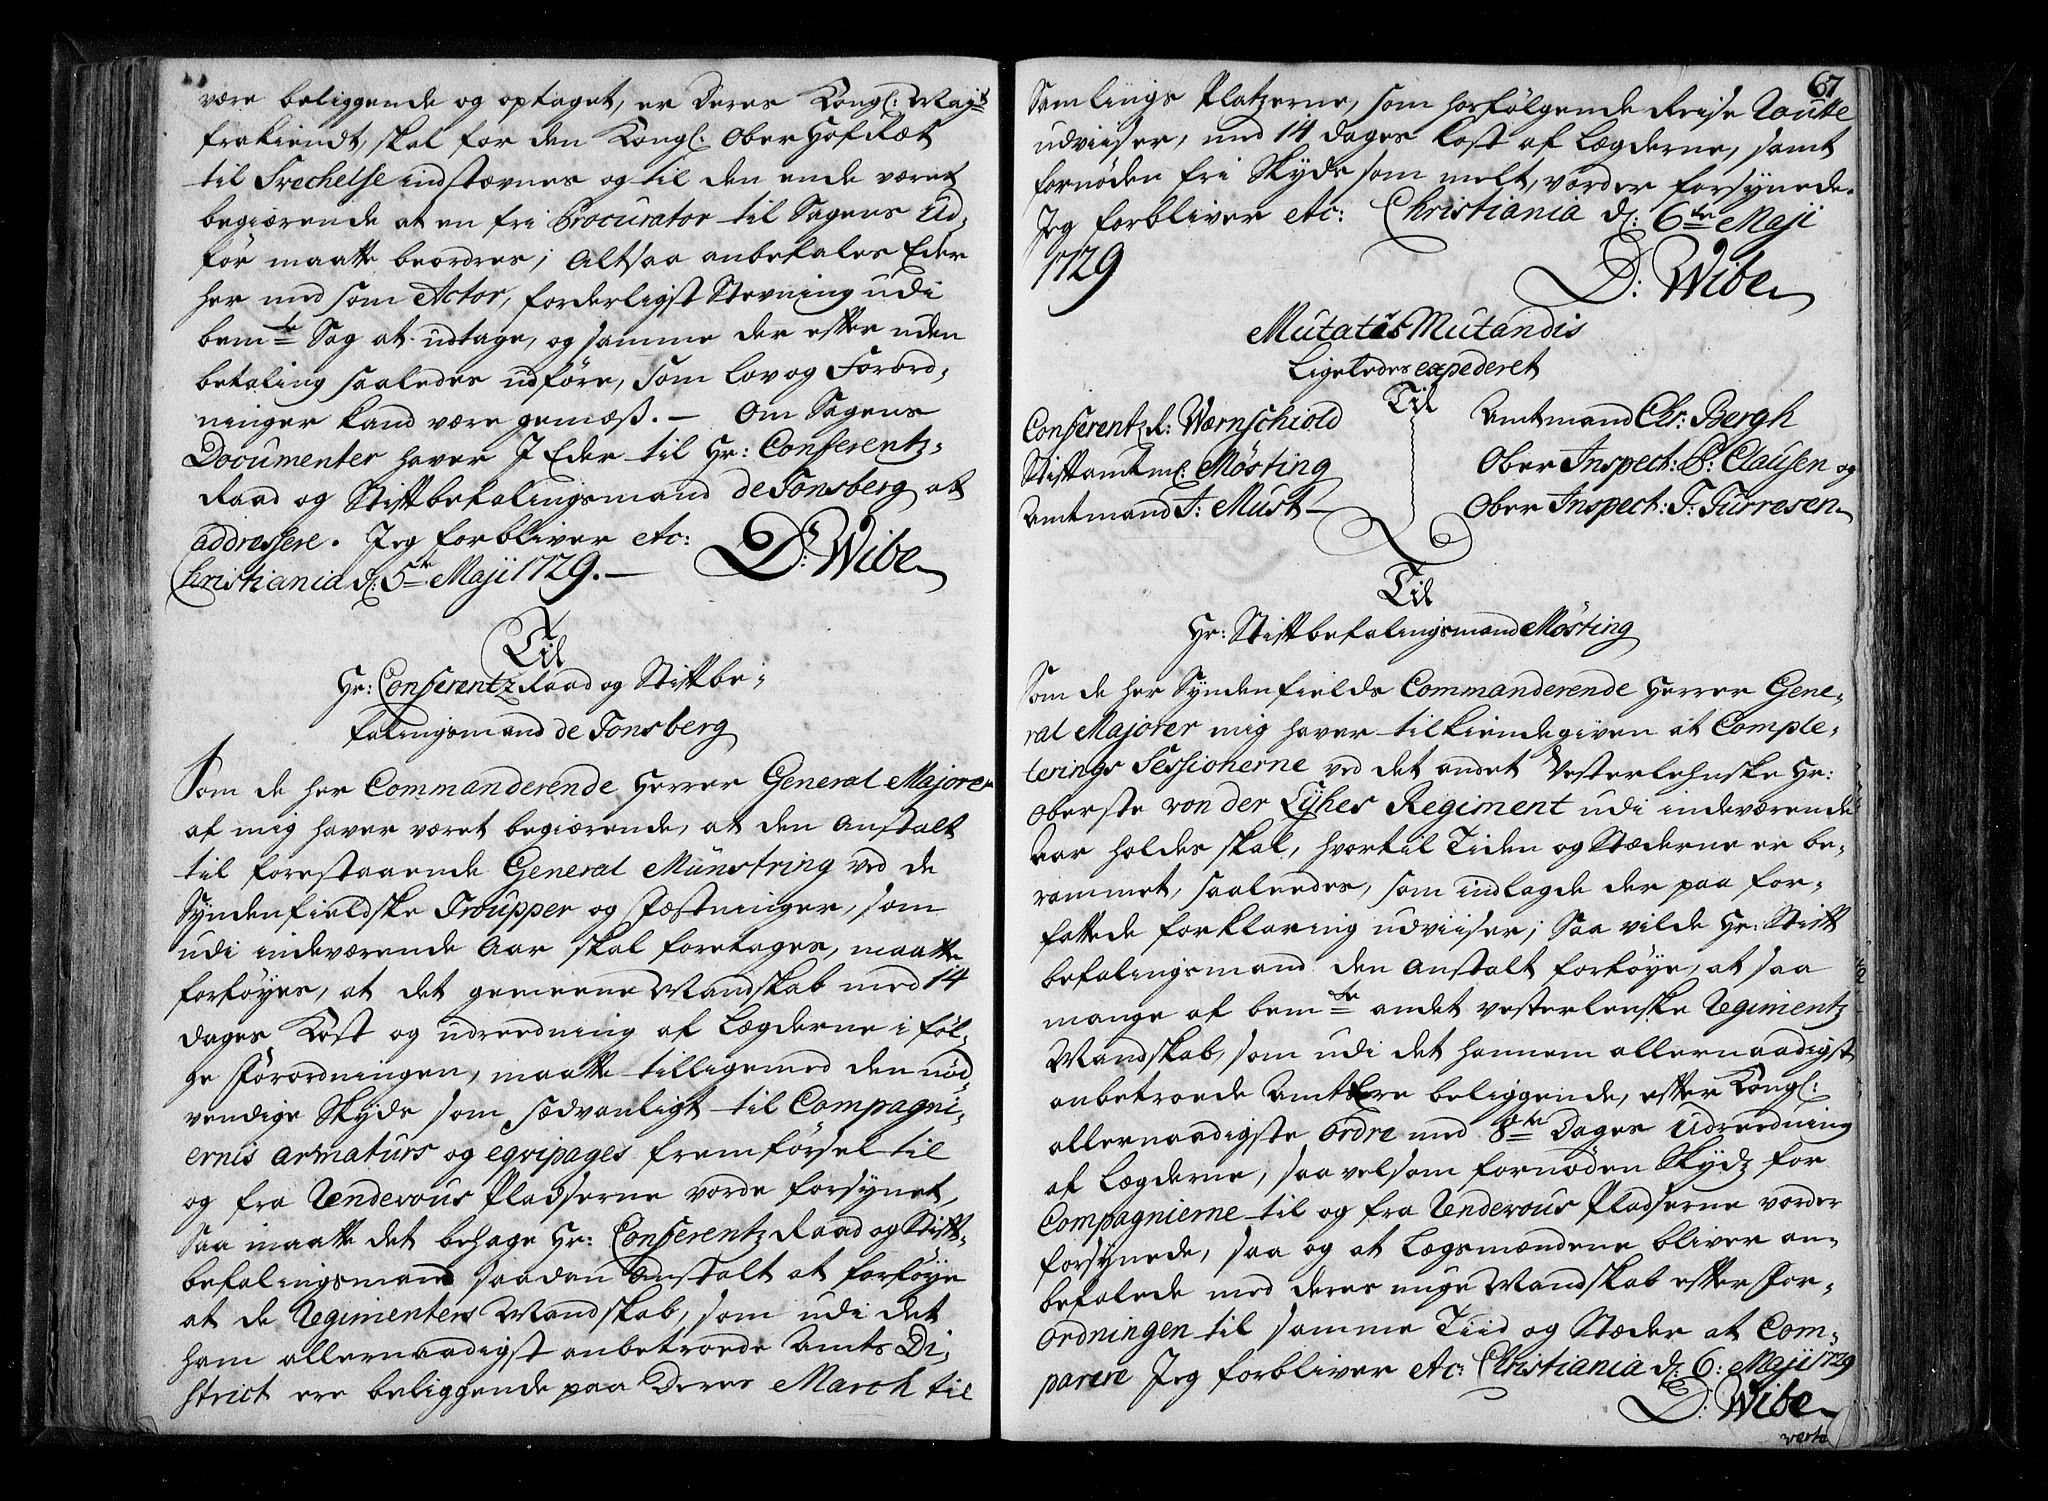 være beliggende og optaget, er Deres Kongl: Mayts
frakiendt, skal for den Kongl: Ober Hof Ræt
til Svechelse indstævnes og til den ende været
begiærende at en fri Procurator til Sagens Ud-
før maatte beordres; Altsaa anbefales Eder
her med som Actor, forderligst Stevning udi
bemte Sag at udtage, og samme der effter uden
betaling saaledes udføre, som lov og Forord-
ninger kand være gemæss. — Om Sagens
Documenter haver I Eder til Hr: Conferentz-
Raad og Stiftbefalingsmand de Tonsberg at
addressere. Jeg forbliver etc:
Christiania d: 5te Maji 1729. — D: Wibe
Til
Hr: Conferentz Raad og Stiftbe-
falingsmand de Tonsberg
Som de her Commanderende Herrer General Majorer
af mig haver været begiærende, at den Anstalt
til forestaaende General Münstring ved de
Syndenfieldske Troupper og Fæstninger, som
udi indeværende Aar skal foretages, maatte
forføyes, at det gemeene Mandskab med 14
dages Kost og udreedning af Lægderne i føl-
ge Forordningen, maatte tilligemed den nød-
vendige Skyds som sædvanligt til Compagni-
ernis armaturs og eqvipages fremførsel til
og fra Rendevous Pladserne vorde forsynet,
Saa maatte det behage Hr: Conferentz Raad og Stift-
befalingsmand saadan Anstalt at forføye
at de Regimenters Mandskab, som udi det
ham allernaadigst anbetroede Amts Di-
strict ere beliggende paa Deres March til
67
Samlings Platzerne, som hosfølgende Reise Route
udviiser, med 14 dages Kost af Lægderne, samt
fornøden fri Skyds som melt, vorder forsynede.
Jeg forbliver etc: Christiania d: 6te Maji
1729
D: Wibe
Mutatis Mutandis
Ligeledes expederet
Til
Conferentz R: Wærnschiold
Stiftamtm: Møsting
Amtmand J: Must —
Amtmand Chr: Bergh
Ober Inspect: P: Clausen og
Ober Inspect: T: Turresen
Til
Hr: Stiftbefalingsmand Møsting
Som de her Syndenfields Commanderende Herrer Gene-
ral Majorer mig haver tilkiendegiven at Comple-
terings Sessionerne ved det andet Vesterlehnske Hr:
Oberste von der Lühes Regiment udi indeværende
Aar holdes skal, hvortil Tiden og Stæderne er be-
rammet, saaleedes, som indlagde der paa for-
fattede forklaring udviiser; Saa vilde Hr: Stift
befalingsmand den Anstalt forføye, at saa
mange af bemte andet vesterlenske Regimentz
Mandskab, som udi det hannem allernaadigst
anbetroede Amt Ere beliggende, effter Kongl:
allernaadigste Ordre med 8te Dages Udreedning
af Lægderne, saavelsom fornøden Skydz for
Compagnierne til og fra Rendevous Pladserne vorder
forsynede, saa og at Lægsmændene bliver an-
befalede med deres unge Mandskab effter For-
ordningen til samme Tiid og Stæder at Com-
parere Jeg forbliver etc: Christiania d: 6: Maji 1729
D: Wibe